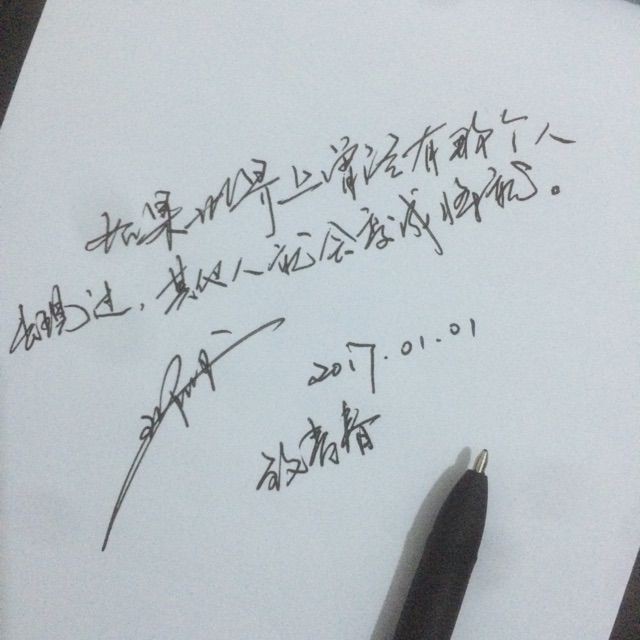 如果世界上曾经有那个人
出现过，其他人都会变成将就。
2017.01.01
致青春